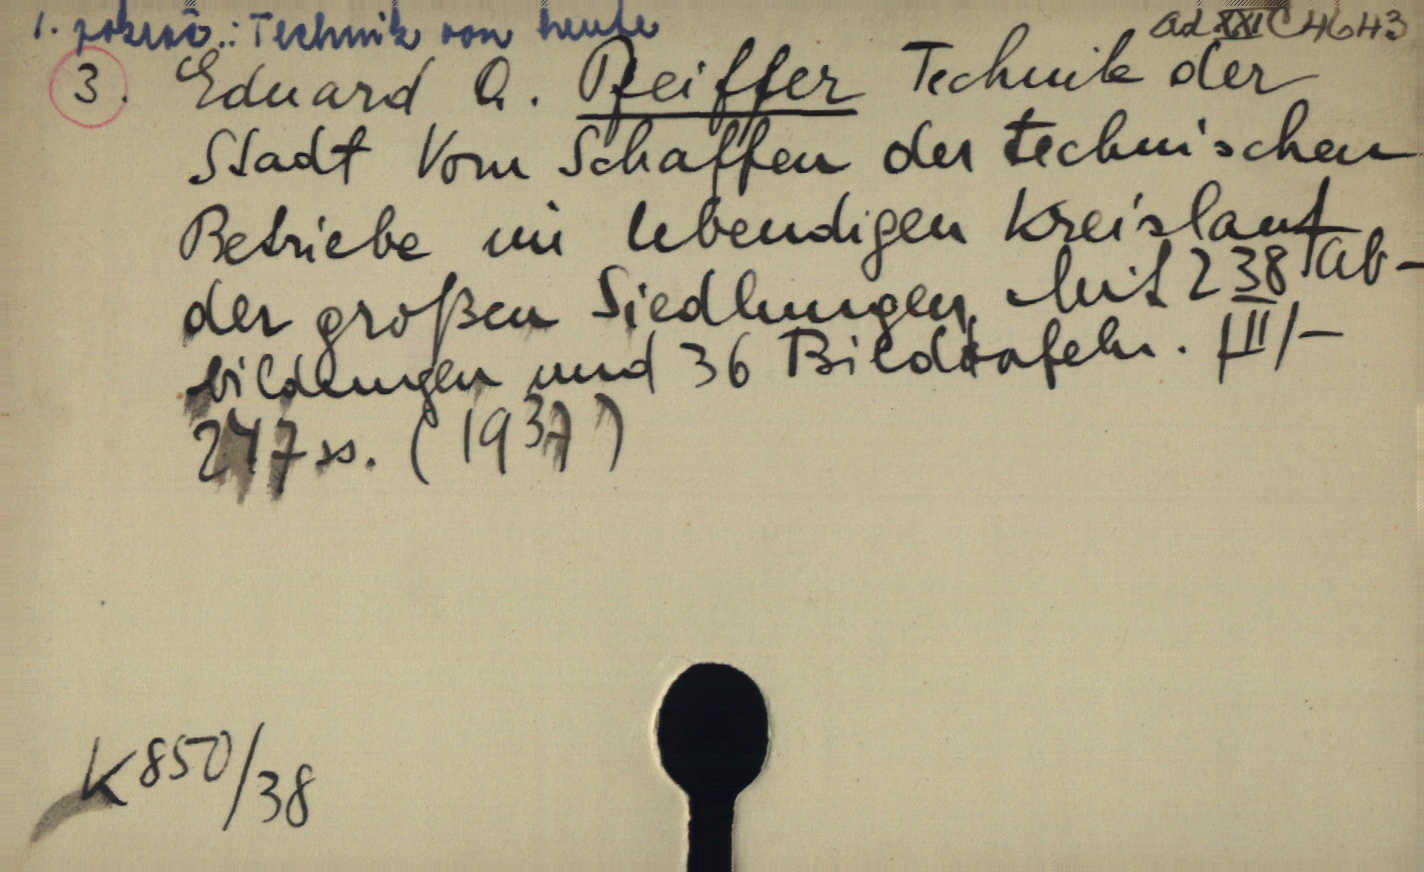 1. : Technik von heute
ad XXI C 4643
3. Eduard A. Pfeiffer Technik der
Stadt Vom Schaffen der technischen
Betriebe im lebendigen Kreislauf
der großen Siedlungen. Mit 238 Ab-
bildungen und 36 Bildtafeln. III/-
247 ss. (1937)
K 850/38